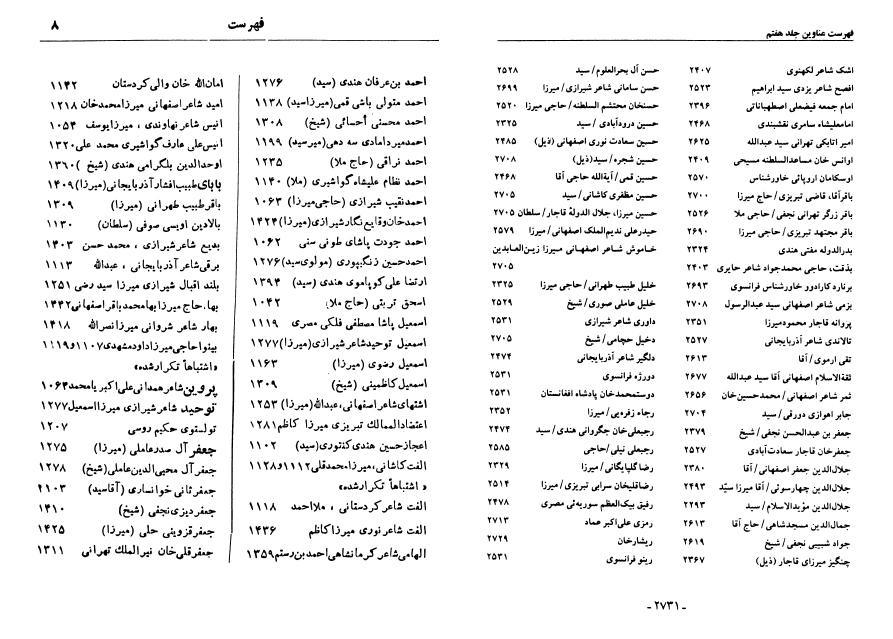 فهرست عناوین جلد هفتم
اشک شاعر لکهنوی ۲۴۰۷
افصح شاعر یزدی سید ابراهیم ۲۵۲۳
امام جمعه فیضعلی اصطهباناتی ۲۳۹۶
امامعلیشاه سامری نقشبندی ۲۴۶۸
امیر اتابکی تهرانی سید عبدالله ۲۶۲۵
اوانس خان مساعدالسلطنه مسیحی ۲۴۰۹
اوسکامان اروپائی خاورشناس ۲۵۷۰
باقرآقا، قاضی تبریزی/ حاج میرزا ۲۷۰۰
باقر زرگر تهرانی نجفی/ حاجی ملا ۲۵۲۶
باقر مجتهد تبریزی/ حاجی میرزا ۲۶۹۰
بدرالدوله مفتی هندی ۲۳۲۴
بذقت، حاجی محمدجواد شاعر حایری ۲۴۰۳
برنارد کارادوو خاورشناس فرانسوی ۲۶۹۳
بزمی شاعر اصفهانی سید عبدالرسول ۲۷۰۸
پروانه قاجار محمودمیرزا ۲۳۵۱
تالاندی شاعر آذربایجانی ۲۵۲۷
تقی ارموی/ آقا ۲۶۱۳
ثقةالاسلام اصفهانی آقا سید عبدالله ۲۶۷۷
ثمر شاعر اصفهانی/ محمدحسین‌خان ۲۶۵۶
جابر اهوازی دورقی/ سید ۲۷۰۴
جعفر بن عبدالحسن نجفی/ شیخ ۲۳۷۹
جعفرخان قاجار سعادت‌آبادی ۲۵۲۷
جلال‌الدین جعفر اصفهانی/ آقا ۲۳۸۰
جلال‌الدین چهارسوئی/ آقا میرزا سیّد ۲۴۹۳
جلال‌الدین مؤیدالاسلام/ سید ۲۲۹۳
جمال‌الدین مسجدشاهی/ حاج آقا ۲۶۱۳
جواد شبیبی نجفی/ شیخ ۲۶۱۹
چنگیز میرزای قاجار (ذیل) ۲۳۶۷
حسن آل بحرالعلوم/ سید ۲۵۲۸
حسن سامانی شاعر شیرازی/ میرزا ۲۶۹۹
حسنخان محتشم السلطنه/ حاجی میرزا ۲۵۲۰
حسین درودآبادی/ سید ۲۳۲۵
حسین سعادت نوری اصفهانی (ذیل) ۲۴۸۵
حسین شجره/ سید(ذیل) ۲۷۰۸
حسین قمی/ آیةالله حاجی آقا ۲۴۶۸
حسین مظفری کاشانی/ سید ۲۷۰۵
حسین میرزا، جلال الدولهٔ قاجار/ سلطان ۲۷۰۵
حیدرعلی ندیم‌الملک اصفهانی/ میرزا ۲۵۷۹
خاموش شاعر اصفهانی میرزا زین‌العابدین
۲۷۰۵
خلیل طبیب طهرانی/ حاجی میرزا ۲۳۲۵
خلیل عاملی صوری/ شیخ ۲۵۲۹
داوری شاعر شیرازی ۲۵۳۱
دخیل حجامی/ شیخ ۲۷۰۵
دلگیر شاعر آذربایجانی ۲۴۷۴
دورژه فرانسوی ۲۵۳۱
دوستمحمدخان پادشاه افغانستان ۲۵۳۱
رجاء زفره‌یی/ میرزا ۲۳۵۲
رجبعلی‌خان جگروانی هندی/ سید ۲۴۷۴
رجبعلی نیلی/حاجی ۲۵۸۵
رضا گلپایگانی/ میرزا ۲۳۲۹
رضاقلیخان سرابی تبریزی/ میرزا ۲۵۱۴
رفیق بیک‌العظم سوریه‌ئی مصری ۲۴۷۸
رمزی علی‌اکبر عماد ۲۷۱۳
ریشارخان ۲۷۲۹
رینو فرانسوی ۲۵۳۱
- ۲۷۳۱ -
فهرست ۸
احمد بن عرفان هندی (سید) ۱۲۷۶
احمد متولی باشی قمی(میرزاسید) ۱۱۳۸
احمد محسنی أحسائی (شیخ) ۱۳۰۸
احمد میردامادی سه دهی(میرسید) ۱۱۹۹
احمد نراقی (حاج ملا) ۱۲۳۵
احمد نظام علیشاه گواشیری (ملا) ۱۱۴۰
احمدنقیب شیرازی (حاجی‌میرزا) ۱۰۶۳
احمدخان وقایع نگار شیرازی(میرزا) ۱۴۲۴
احمد جودت پاشای طونی سنی ۱۰۶۲
احمدحسین زنگیپوری (مولوی‌سید) ۱۲۷۶
ارتضا علی‌کوپاموی هندی (سید) ۱۳۹۴
اسحق تربتی (حاج ملا) ۱۰۴۲
اسمعیل پاشا مصطفی فلکی مصری ۱۱۱۹
اسمعیل توحیدشاعر شیرازی(میرزا) ۱۲۷۷
اسمعیل رضوی (میرزا) ۱۱۶۳
اسمعیل کاظمینی (شیخ) ۱۳۰۹
اشتهای شاعر اصفهانی،عبدالله(میرزا) ۱۲۵۳
اعتضادالممالک تبریزی میرزا کاظم ۱۲۸۱
اعجاز حسین هندی کنتوری(سید) ۱۱۰۲
الفت کاشانی، میرزا محمدقلی ۱۱۱۲و۱۱۲۸
«اشتباهاً تکرارشده»
الفت شاعر کردستانی ، ملا احمد ۱۱۱۸
الفت شاعر نوری میرزا کاظم ۱۴۳۶
الهامی شاعر کرمانشاهی احمدبن رستم ۱۳۵۹
امان‌الله خان والی کردستان ۱۱۴۲
امید شاعر اصفهانی میرزا محمدخان ۱۲۱۸
انیس شاعر نهاوندی ، میرزایوسف ۱۰۵۴
انیس علی عارف گواشیری محمد علی ۱۳۲۰
اوحدالدین بلگرامی هندی (شیخ ) ۱۳۶۰
بابای‌طبیب افشار آذربایجانی(میرزا) ۱۴۰۹
باقر طبیب طهرانی (میرزا) ۱۳۰۹
بالادین اویسی صوفی (سلطان) ۱۱۳۰
بدیع شاعر شیرازی ، محمد حسن ۱۴۰۳
برقی شاعر آذربایجانی ، عبدالله ۱۱۱۳
بلند اقبال شیرازی میرزا سید رضی ۱۲۵۱
بها، حاج میرزا بهامحمد باقر اصفهانی ۱۴۴۲
بهار شاعر شروانی میرزا نصرالله ۱۴۱۸
بینوا حاجی میرزا داود مشهدی ۱۱۰۷و۱۱۱۹
«اشتباهاً تکرارشده»
پروین شاعر همدانی علی‌اکبر یا محمد ۱۰۶۴
توحید شاعر شیرازی میرزا اسمعیل ۱۲۷۷
تولستوی حکیم روسی ۱۲۰۷
جعفر آل صدرعاملی (میرزا) ۱۲۷۵
جعفر آل محیی‌الدین عاملی(شیخ) ۱۲۷۸
جعفر ثانی خوانساری (آقاسید) ۴۱۰۳
جعفر دیزی نجفی (شیخ) ۱۴۱۰
جعفر قزوینی حلی (میرزا) ۱۴۲۵
جعفرقلی خان نیرالملک تهرانی ۱۳۱۱